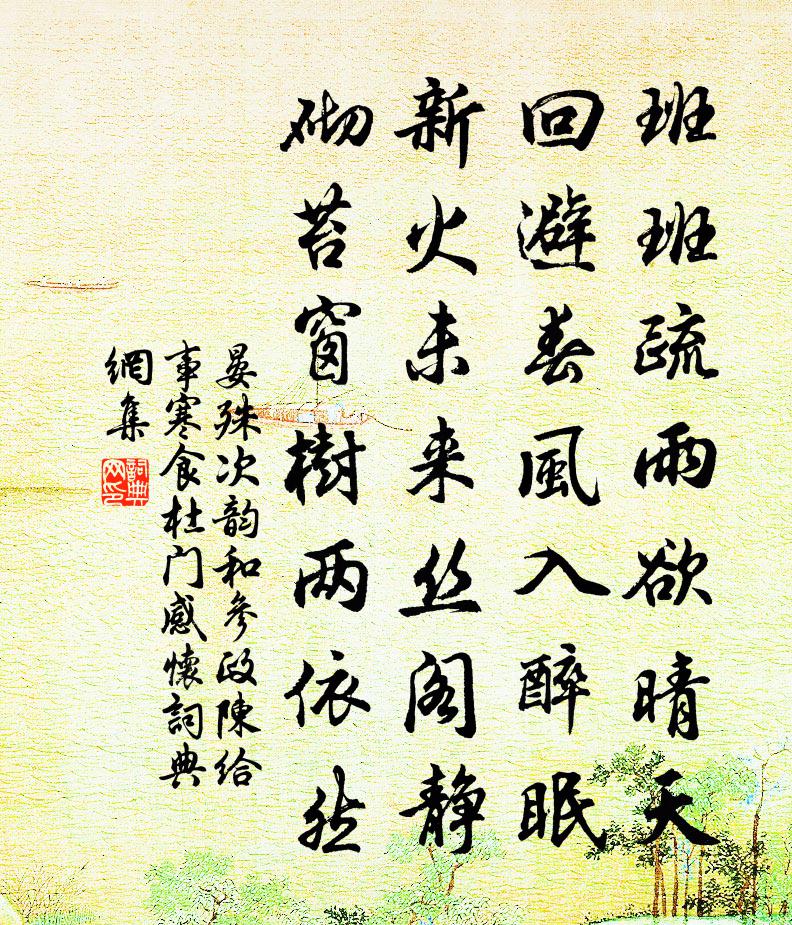 班班疏雨欲晴天
回避春風入醉眠
新火未来丝阁静
砌苔窗樹两依然
晏殊次韵和参政陳给
事寒食杜门感懷詞典
網集
詞典网印